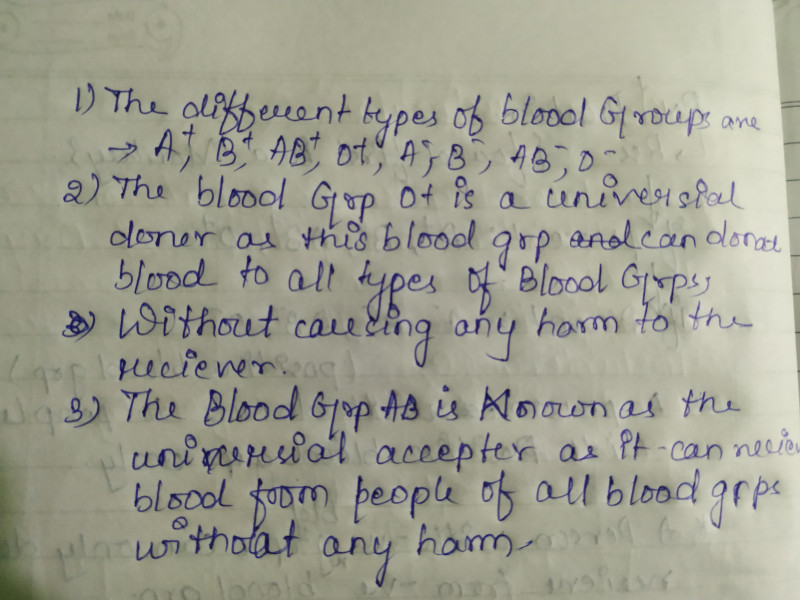 1) The different types of blood Groups are
→ A⁺, B⁺, AB⁺, O+, A⁻, B⁻, AB⁻, O⁻
2) The blood Grp O+ is a universial
doner as this blood grp can donat
blood to all types of Blood Grps,
Without causing any harm to the
reciever.
3) The Blood Grp AB is Known as the
universial accepter as it can reciev
blood from people of all blood grps
without any harm.